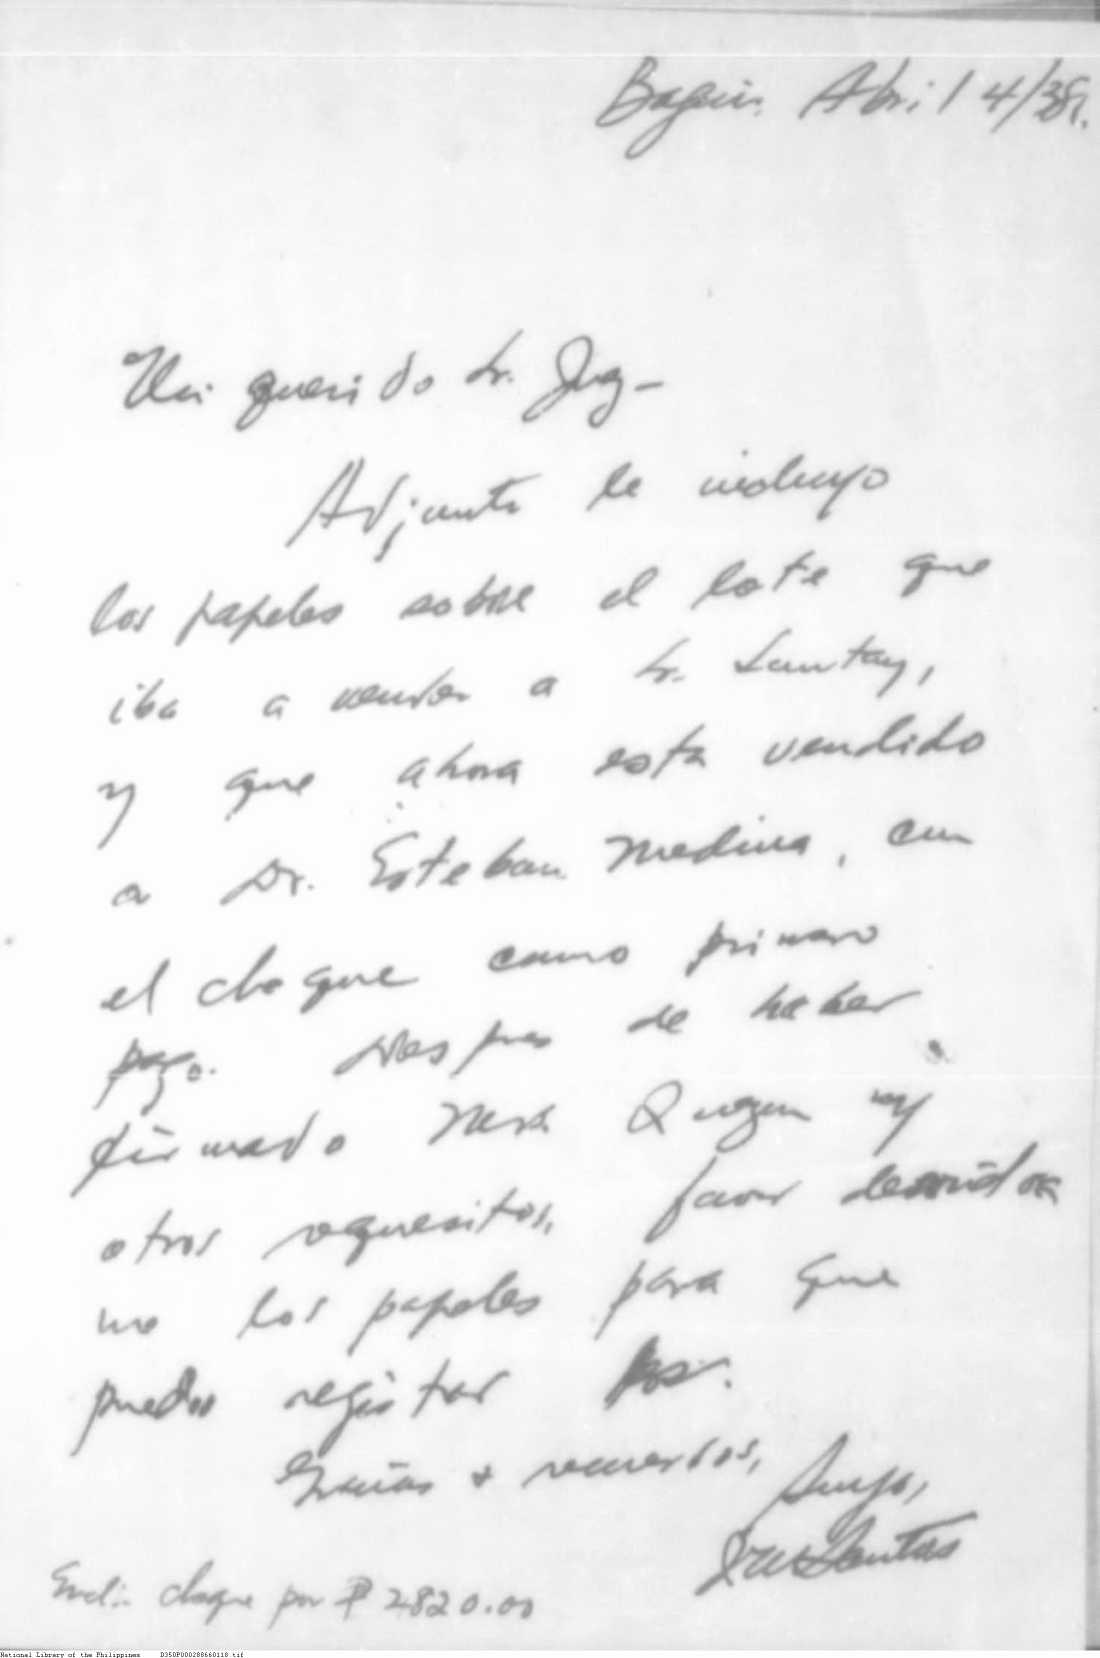 Baguio. Abril 4/38.
Mi querido Sr.
Adjunto le incluyo
los papeles sobre el lote que
iba a vender a Sr. Suntay,
y que ahora esta vendido
a Dr. Esteban Medina, con
el cheque como primero
pago. Despues de haber
firmado Mrs. Quezon y
otros requesitos, favor
me los papeles para que
puedo registrar
Gracias & recuerdos,
Suyo,
Santos
Encl: cheque por ₱ 2820.00
National Library of the Philippines D350P000288660118.tif